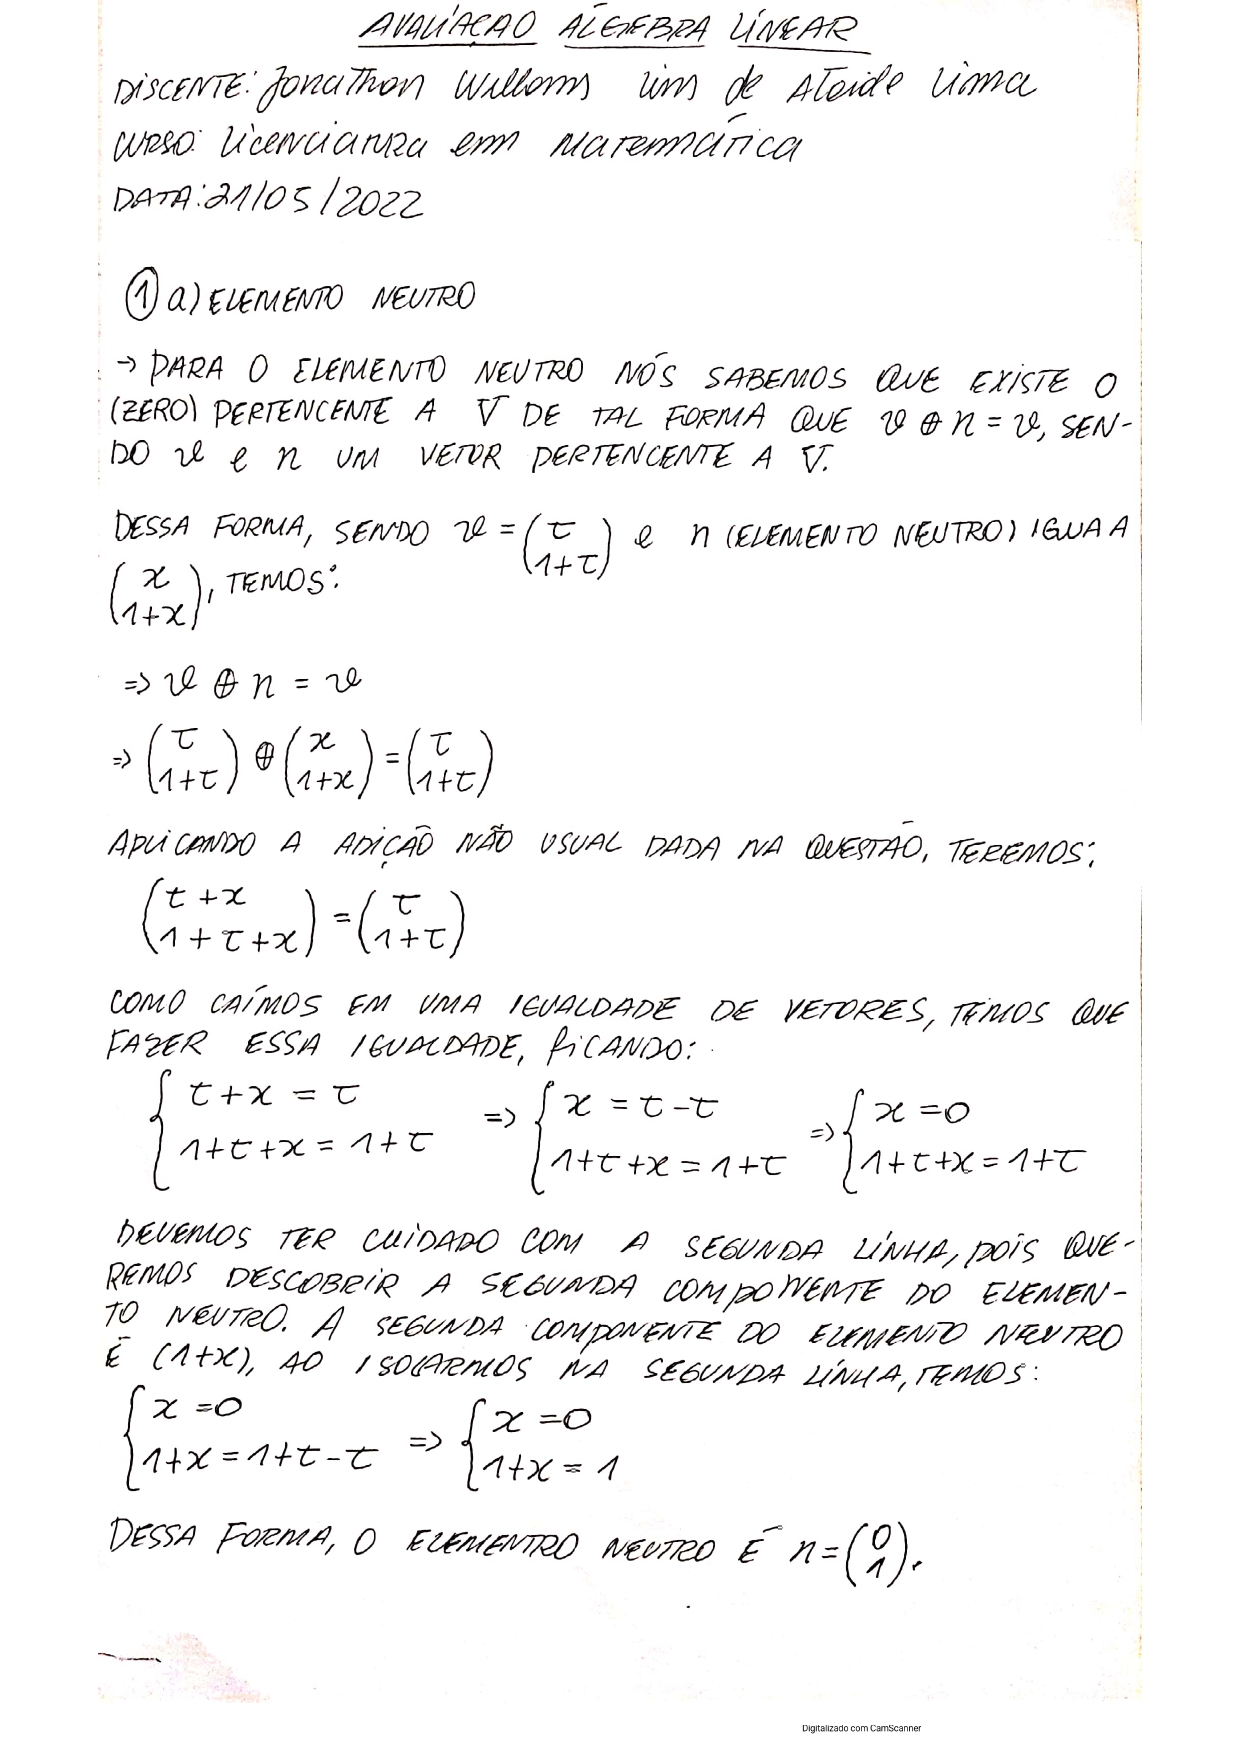 AVALIAÇÃO ÁLGEBRA LINEAR
DISCENTE: Jonathon Willams Lins de Ataide Lima
CURSO: Licencianza em Matemática
DATA: 21/05/2022
① a) ELEMENTO NEUTRO
→ PARA O ELEMENTO NEUTRO NÓS SABEMOS QUE EXISTE O
(ZERO) PERTENCENTE A V DE TAL FORMA QUE v ⊕ n = v, SEN-
DO v e n UM VETOR PERTENCENTE A V.
DESSA FORMA, SENDO v = (t; 1+t) e n (ELEMENTO NEUTRO) IGUA A
(x; 1+x), TEMOS:
⇒ v ⊕ n = v
⇒ (t; 1+t) ⊕ (x; 1+x) = (t; 1+t)
APLICANDO A ADIÇÃO NÃO USUAL DADA NA QUESTÃO, TEREMOS:
(t+x; 1+t+x) = (t; 1+t)
COMO CAÍMOS EM UMA IGUALDADE DE VETORES, TEMOS QUE
FAZER ESSA IGUALDADE, FICANDO:
{ t+x = t; 1+t+x = 1+t ⇒ { x = t-t; 1+t+x = 1+t ⇒ { x = 0; 1+t+x = 1+t
DEVEMOS TER CUIDADO COM A SEGUNDA LINHA, POIS QUE-
REMOS DESCOBRIR A SEGUNDA COMPONENTE DO ELEMEN-
TO NEUTRO. A SEGUNDA COMPONENTE DO ELEMENTO NEUTRO
É (1+x), AO ISOLARMOS NA SEGUNDA LINHA, TEMOS:
{ x = 0; 1+x = 1+t-t ⇒ { x = 0; 1+x = 1
DESSA FORMA, O ELEMENTRO NEUTRO É n = (0; 1).
Digitalizado com CamScanner